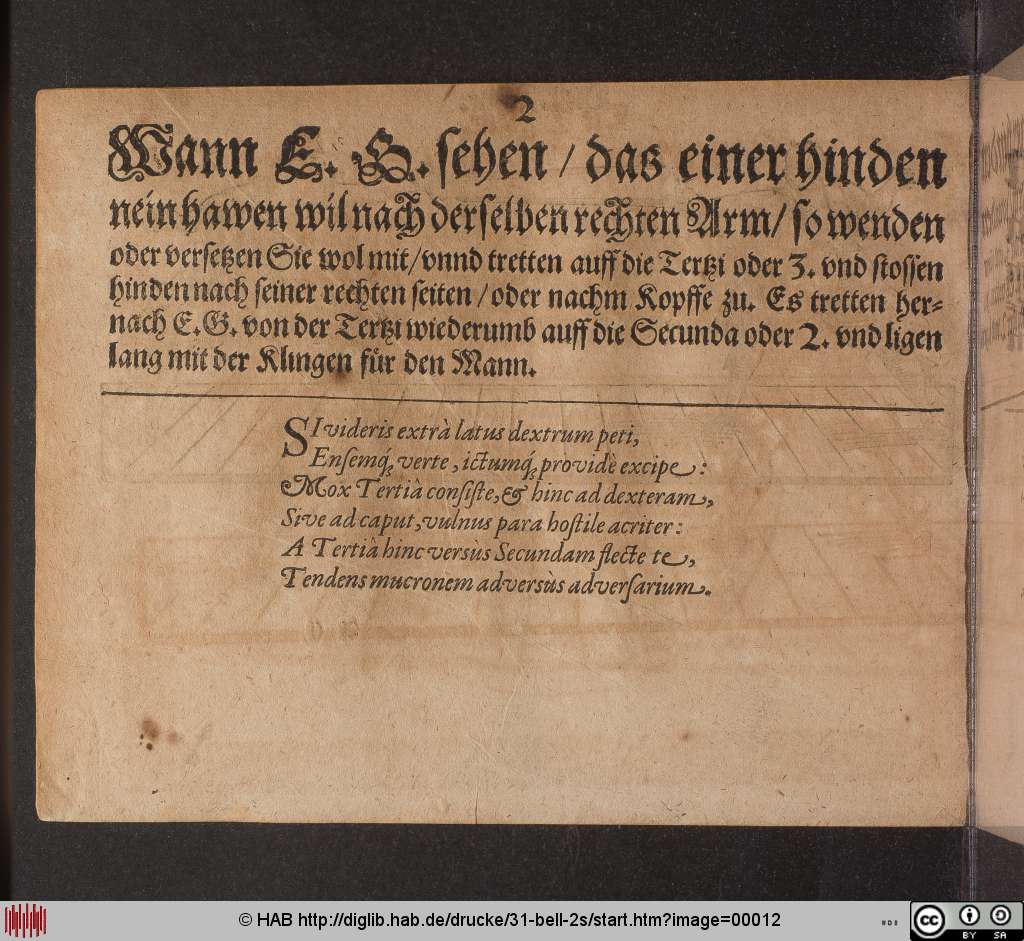 2
Wann E. G. sehen / das einer hinden
nein hawen wil nach derselben rechten Arm / so wenden
oder versetzen Sie wol mit / vnnd tretten auff die Tertzi oder 3. vnd stossen
hinden nach seiner rechten seiten / oder nachm Kopffe zu. Es tretten her-
nach E. G. von der Tertzi wiederumb auff die Secunda oder 2. vnd ligen
lang mit der Klingen für den Mann.
SI videris extrà latus dextrum peti,
Ensemq́; verte, ictumq́; providè excipe:
Mox Tertià consiste, & hinc ad dexteram,
Sive ad caput, vulnus para hostile acriter:
A Tertià hinc versùs Secundam flecte te,
Tendens mucronem adversùs adversarium.
© HAB http://diglib.hab.de/drucke/31-bell-2s/start.htm?image=00012
cc BY SA